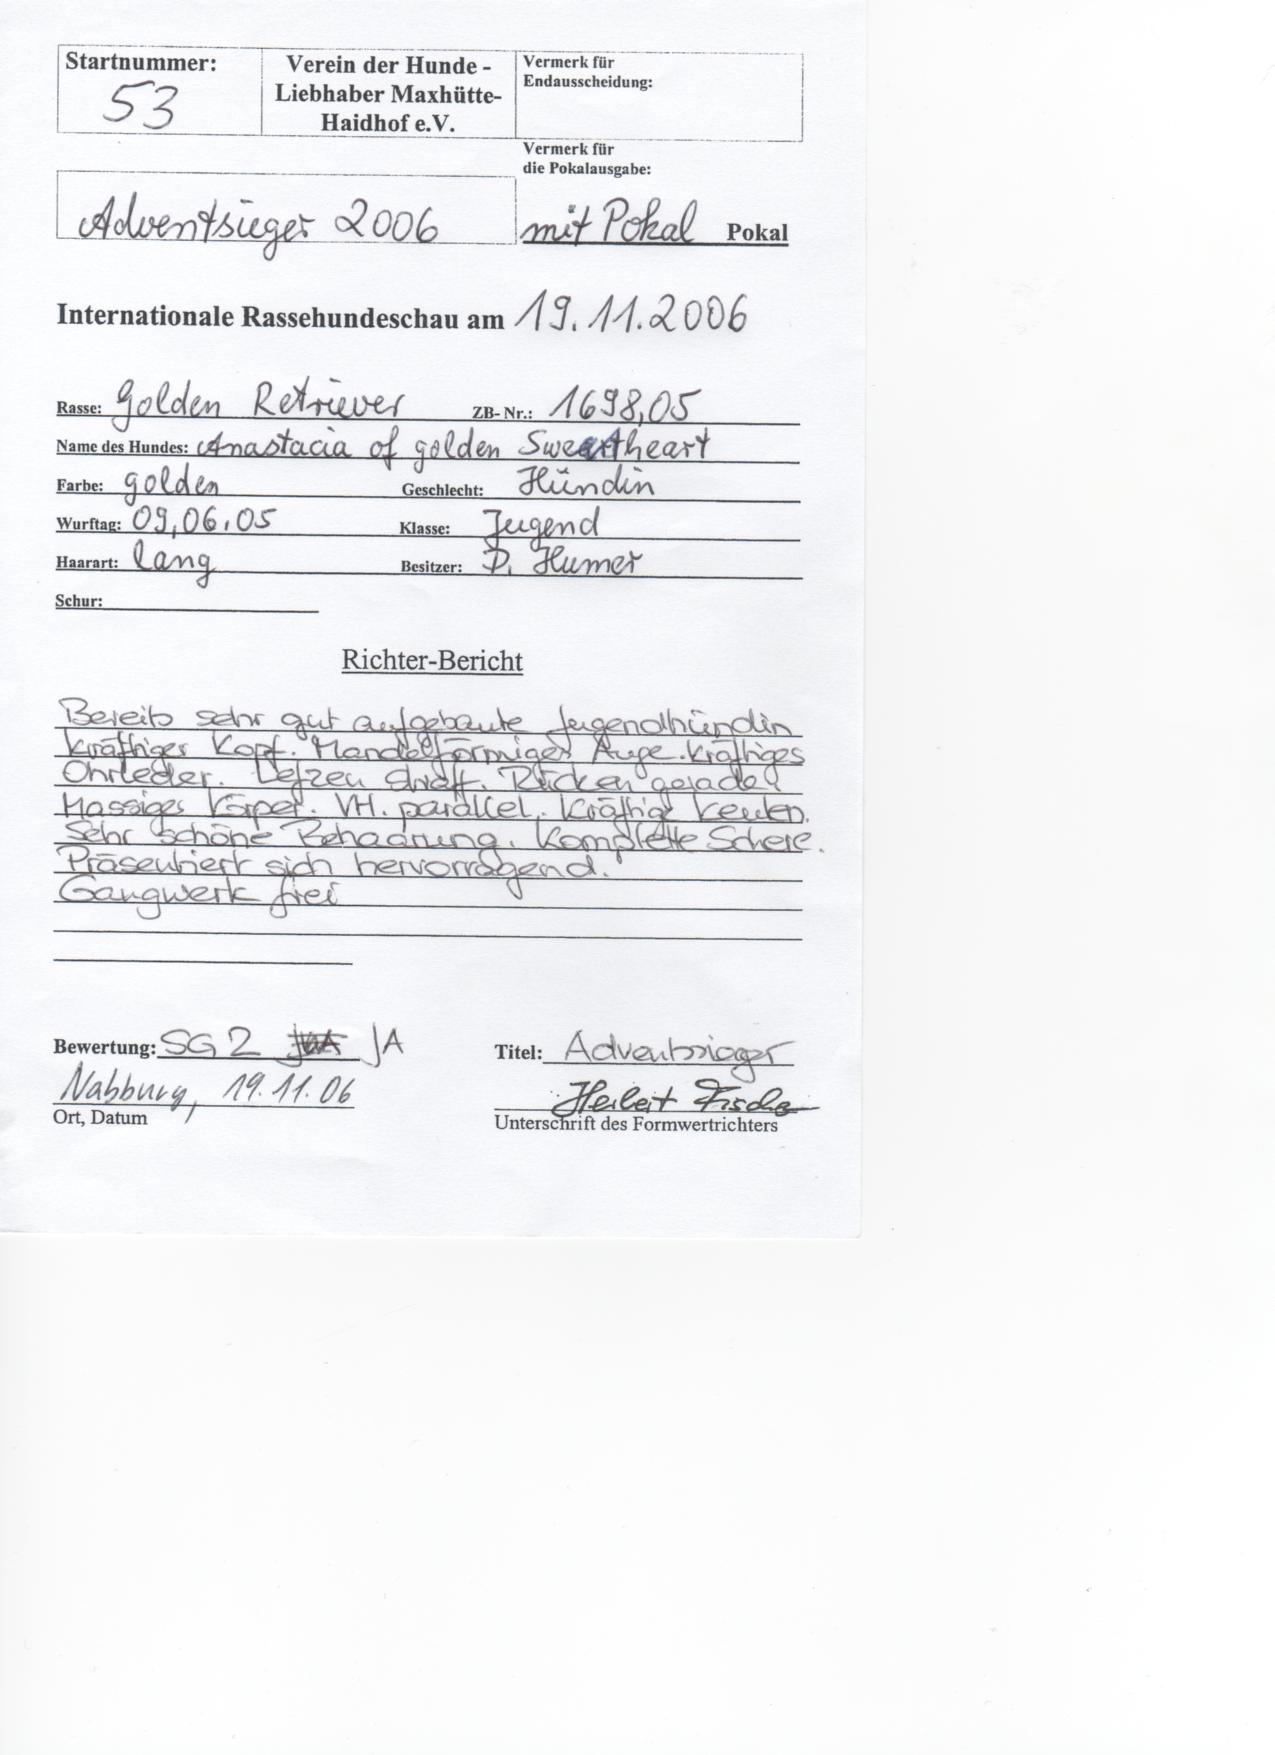 Startnummer:
53
Verein der Hunde -
Liebhaber Maxhütte-
Haidhof e.V.
Vermerk für
Endausscheidung:
Vermerk für
die Pokalausgabe:
Adventsieger 2006
mit Pokal Pokal
Internationale Rassehundeschau am 19.11.2006
Rasse: Golden Retriever ZB- Nr.: 1698,05
Name des Hundes: Anastacia of golden Sweetheart
Farbe: golden Geschlecht: Hündin
Wurftag: 09,06,05 Klasse: Jugend
Haarart: lang Besitzer: D. Humer
Schur:
Richter-Bericht
Bereits sehr gut aufgebaute Jugendhündin
Kräftiger Kopf. Mandelförmiges Auge. Kräftiges
Ohrleder. Lefzen straff. Rücken gerade.
Massiges Körper. VH. parallel. Kräftige Keulen.
Sehr schöne Behaarung. Komplette Schere.
Präsentiert sich hervorragend.
Gangwerk frei
Bewertung: SG 2 JA
Titel: Adventssieger
Nabburg, 19.11.06
Herbert Fischer
Ort, Datum
Unterschrift des Formwertrichters